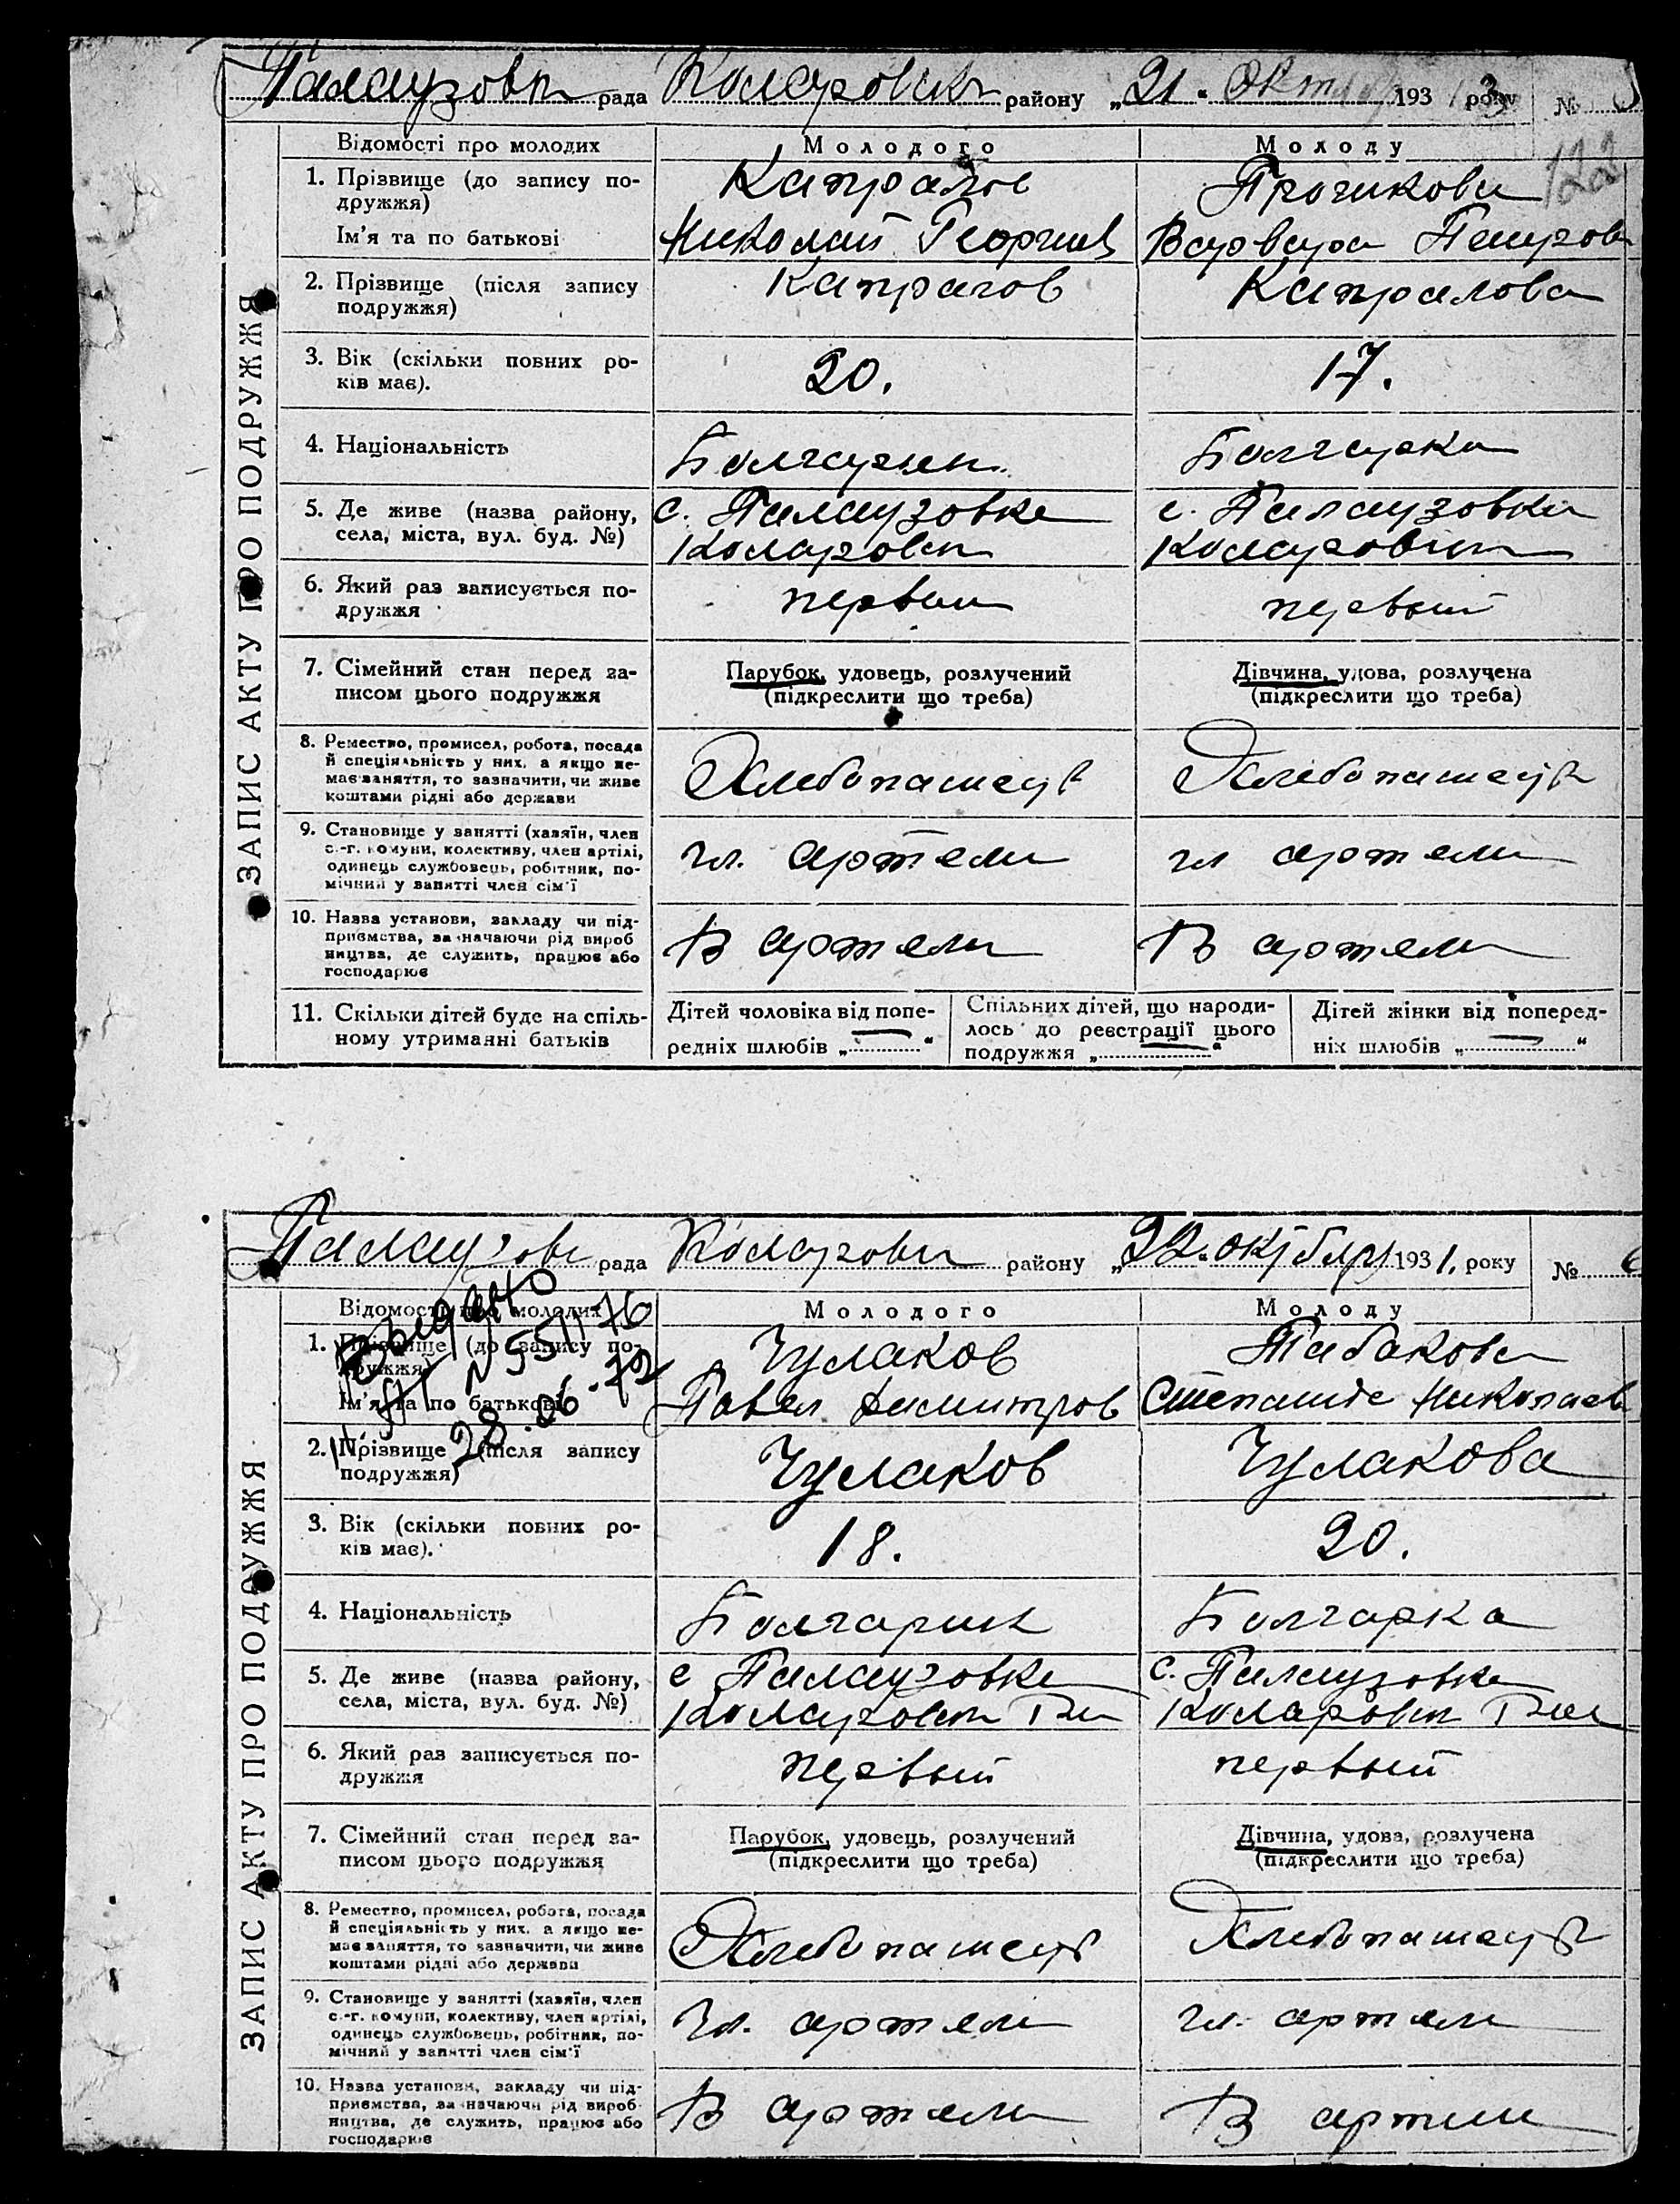 Палаузовк рада Коларовск району „21“ Окт 193 року №
122
ЗАПИС АКТУ ПРО ПОДРУЖЖЯ
Відомості про молодих Молодого Молоду
1. Прізвище (до запису по- Капралов
дружжя)
Ім'я та по батькові Николай Георгиев Варвара
2. Прізвище (після запису Капралов Капралова
подружжя)
3. Вік (скільки повних ро- 20. 17.
ків має).
4. Національність Болгарин Болгарка
5. Де живе (назва району, с. Палаузовка с. Палаузовка
села, міста, вул. буд. №) Коларовск Коларовск
6. Який раз записується по- первый первый
дружжя
7. Сімейний стан перед за- Парубок, удовець, розлучений Дівчина, удова, розлучена
писом цього подружжя (підкреслити що треба) (підкреслити що треба)
8. Ремество, промисел, робота, посада
й спеціяльність у них, а якщо не-
має заняття, то зазначити, чи живе Хлебопашец Хлебопашец
коштами рідні або держави
9. Становище у занятті (хазяїн, член
с.-г. комуни, колективу, член артілі, чл. артели чл артели
одинець службовець, робітник, по-
мічний у занятті член сім'ї
10. Назва установи, закладу чи під-
приємства, зазначаючи рід вироб В артели В артели
ництва, де служить, працює або
господарює
11. Скільки дітей буде на спіль- Дітей чоловіка від попе- Спільних дітей, що народи- Дітей жінки від поперед-
ному утриманні батьків редніх шлюбів „—“ лось до реєстрації цього ніх шлюбів „—“
подружжя „—“
Палаузовк рада Коларовск району „22. октября 1931. року №
ЗАПИС АКТУ ПРО ПОДРУЖЖЯ
Відомості про молодих Молодого Молоду
Выдано
1. Прізвище (до запису по- Чулаков Табакова
дружжя)
N 551176
Ім'я та по батькові Павел Димитров Степанида Николаев
28.06.72
2. Прізвище (після запису Чулаков Чулакова
подружжя)
3. Вік (скільки повних ро- 18. 20.
ків має).
4. Національність Болгарин Болгарка
5. Де живе (назва району, с Палаузовка с. Палаузовка
села, міста, вул. буд. №) Коларовск Р-н Коларовск Р-н
6. Який раз записується по- первый первый
дружжя
7. Сімейний стан перед за- Парубок, удовець, розлучений Дівчина, удова, розлучена
писом цього подружжя (підкреслити що треба) (підкреслити що треба)
8. Ремество, промисел, робота, посада
й спеціяльність у них, а якщо не-
має заняття, то зазначити, чи живе Хлебопашец Хлебопашец
коштами рідні або держави
9. Становище у занятті (хазяїн, член
с.-г. комуни, колективу, член артілі, чл. артели чл. артели
одинець службовець, робітник, по-
мічний у занятті член сім'ї
10. Назва установи, закладу чи під-
приємства, зазначаючи рід вироб- В артели В артели
ництва, де служить, працює або
господарює